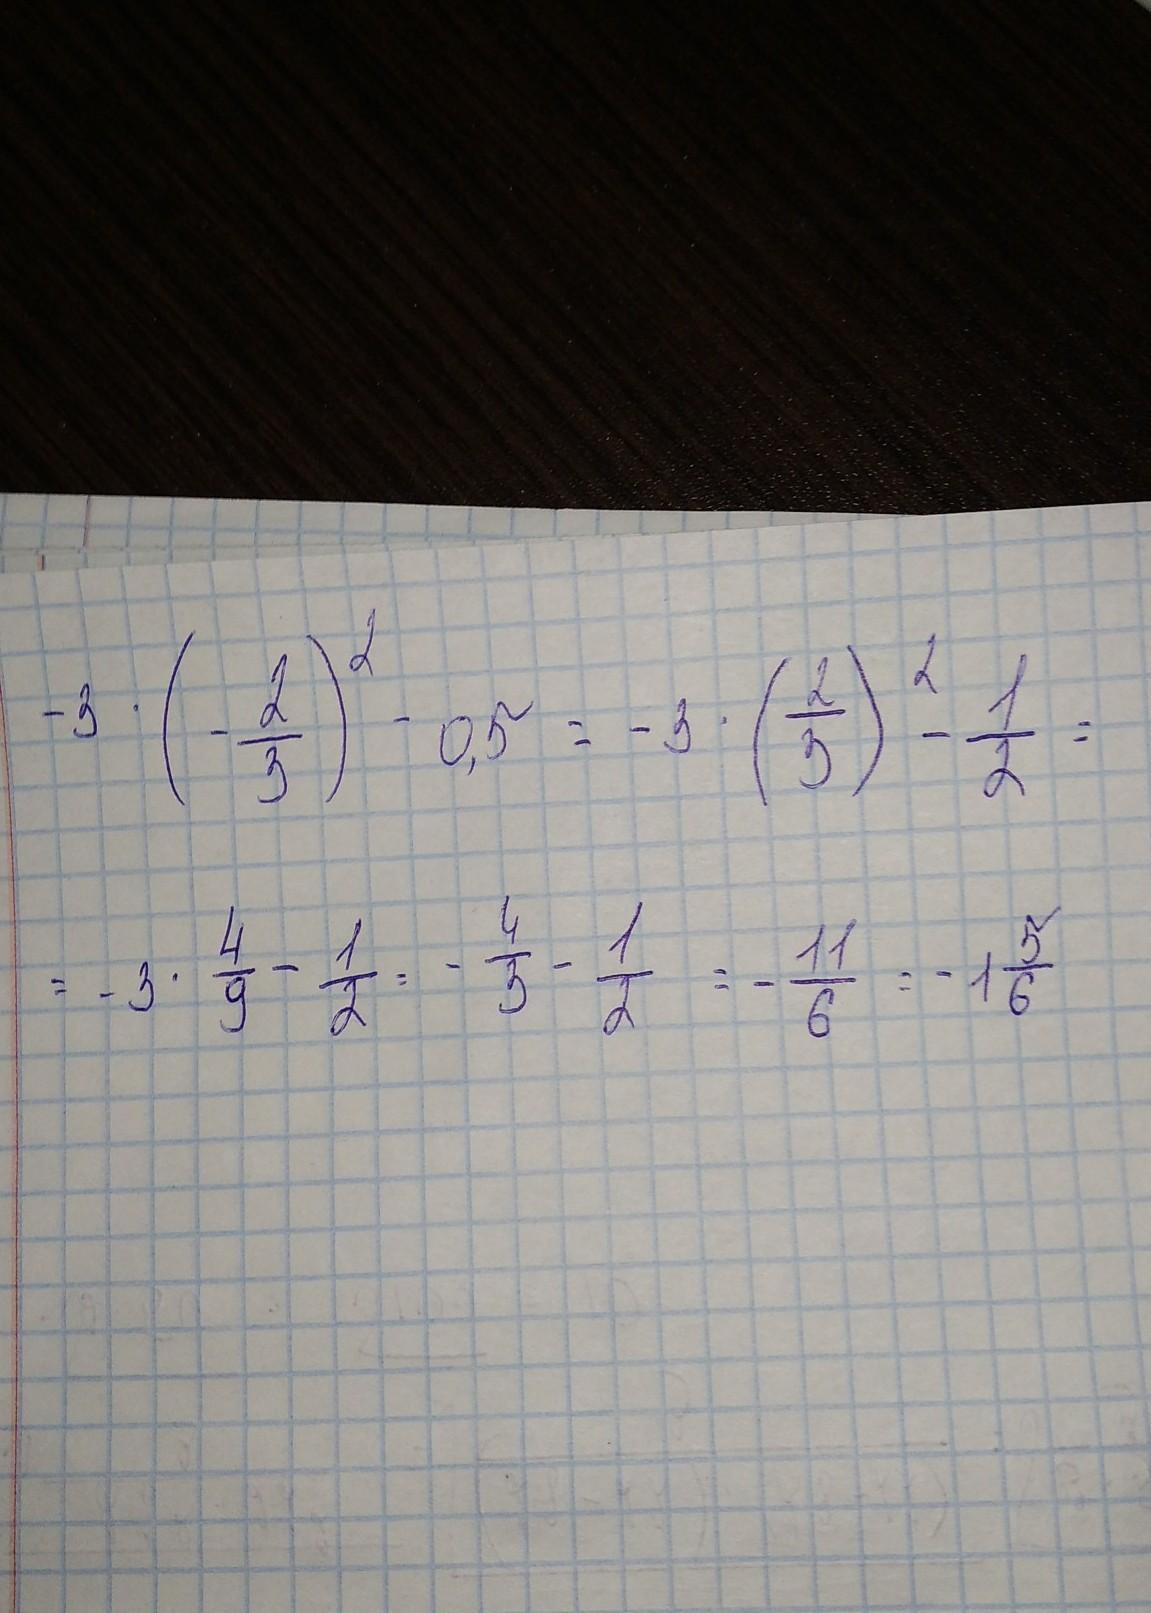 -3 · (-2/3)² - 0,5 = -3 · (2/3)² - 1/2 =
= -3 · 4/9 - 1/2 = -4/3 - 1/2 = -11/6 = -1 5/6